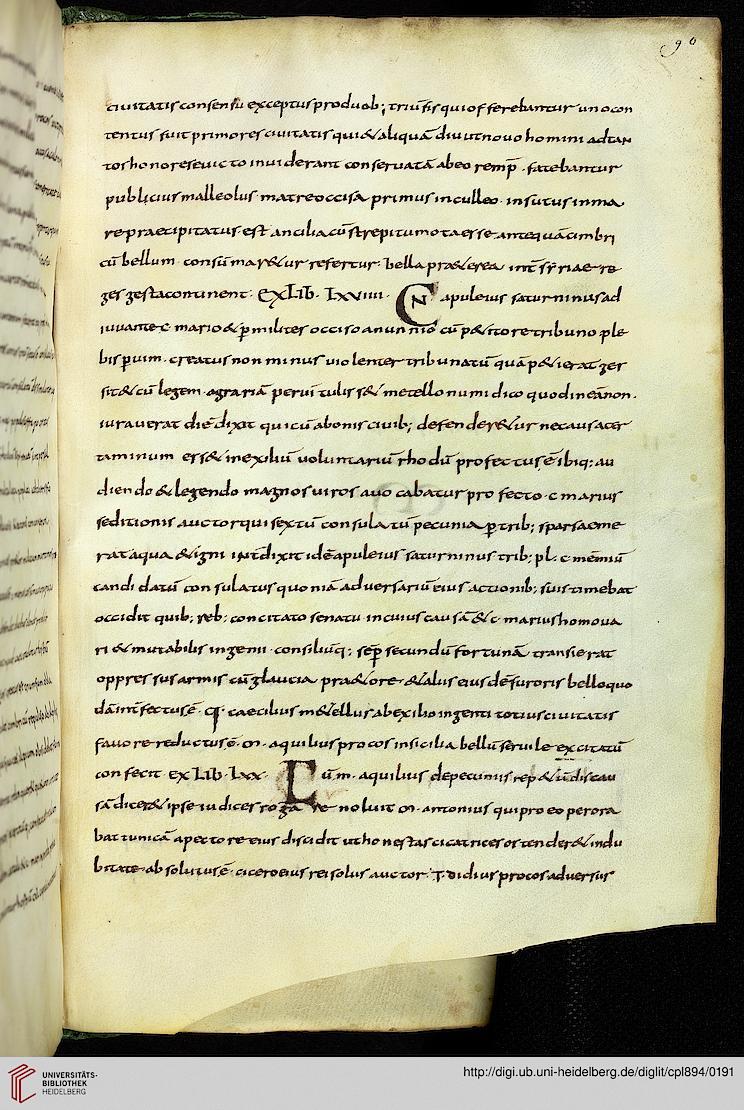 90
ciuitatis consensu exceptus pro duob; triūfis qui offerebantur uno con
tentus fuit primores ciuitatis qui & aliquā diu ut nouo homini ad tan
tos honores euicto inuiderant conseruatā ab eo remp̄ · fatebantur
publicius malleolus · matre occisa primus in culleo · insutus in ma
re praecipitatus · est ancilia cū strepitu mota esse antequā cimbri
cū bellum · consūmar&ur refertur · bella pr&erea int̄ syriae re
ges gesta continent · EX LIB · LXVIIII · CN apuleius saturninus ad
iuuante c mario & p̄ milites occiso a nunnio cū p&itore tribuno ple
bis p̄ uim · creatus non minus uiolenter tribunatū quā p&ierat ges
sit & cū legem · agrariā per uī tuliss& metello numidico quod in eā non ·
iurauerat diē dixit qui cū a bonis ciuib; defender&ur ne causa cer
taminum ess& in exiliū uoluntariū rhodū profectus ē ibiq; au
diendo & legendo magnos uiros auocabatur profecto · c marius
seditionis auctor qui sextū consulatū pecunia p̄ trib; sparsa eme
rat aqua & igni int̄dixit idē apuleius saturninus trib; pl · c mēmiū
candidatū consulatus quoniā aduersariū eius actionib; suis timebat
occidit quib; reb; concitato senatu in cuius causā & c · marius homo ua
ri & mutabilis ingenii · consiliūq; sēp secundū fortunā transierat
oppressus armis cū glaucia pra&ore · & aliis eius dē furoris bello quo
dā int̄fectus ē · q · caecilius m&ellus ab exilio ingenti totius ciuitatis
fauore reductus ē · m · aquilius procos in sicilia bellū seruile excitatū
confecit · EX LIB · LXX · Cū m · aquilius de pecuniis rep&undis cau
sā dicer& ipse iudices rogare noluit m · antonius qui pro eo perora
bat tunicā a pectore eius discidit ut honestas cicatrices ostender& indu
bitate · absolutus ē · cicero eius rei solus auctor · T · didius procos aduersus
UNIVERSITÄTS-
BIBLIOTHEK
HEIDELBERG
http://digi.ub.uni-heidelberg.de/diglit/cpl894/0191